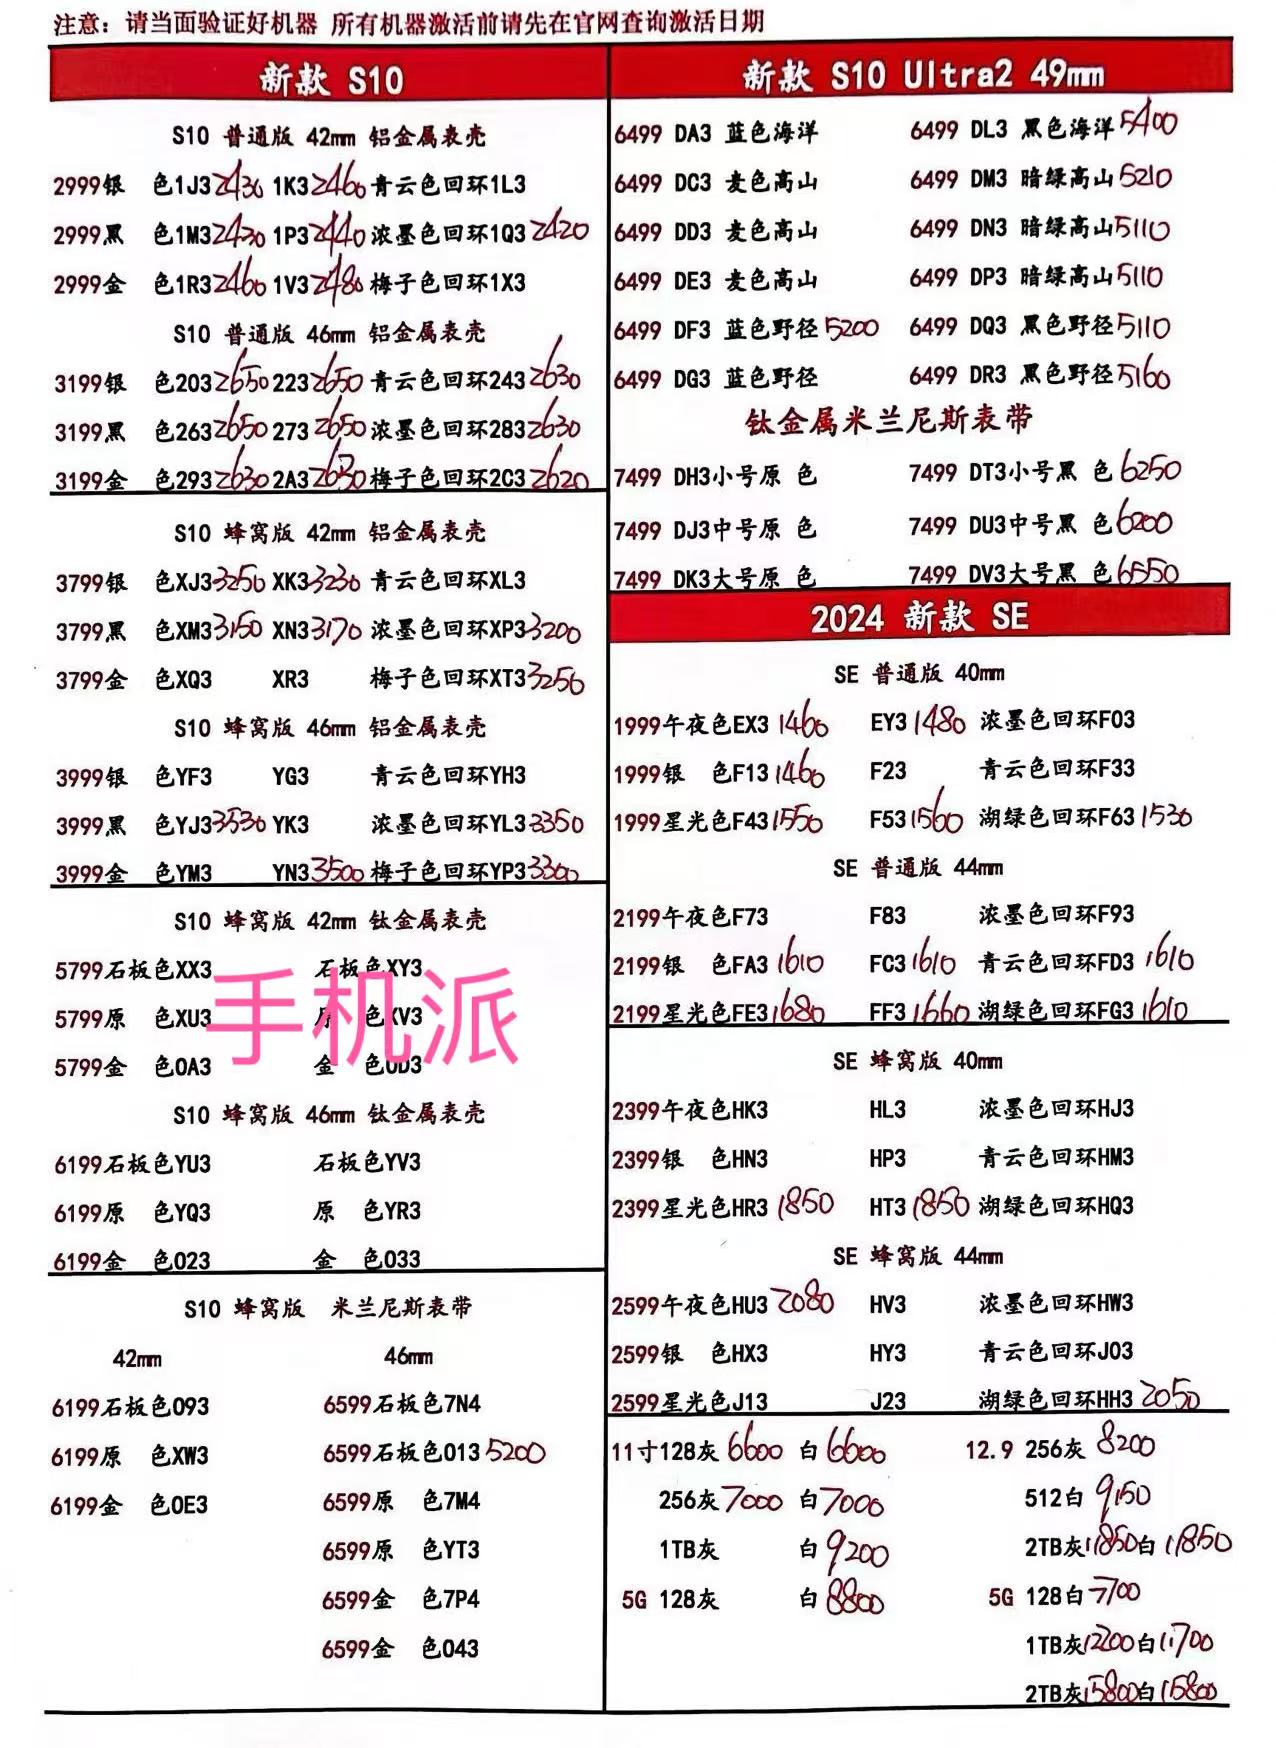 注意：请当面验证好机器 所有机器激活前请先在官网查询激活日期
新款 S10
S10 普通版 42mm 铝金属表壳
2999银 色1J3 2430 1K3 2460 青云色回环1L3
2999黑 色1M3 2420 1P3 2440 浓墨色回环1Q3 2420
2999金 色1R3 2460 1V3 2480 梅子色回环1X3
S10 普通版 46mm 铝金属表壳
3199银 色203 2650 223 2650 青云色回环243 2630
3199黑 色263 2650 273 2650 浓墨色回环283 2630
3199金 色293 2630 2A3 2630 梅子色回环2C3 2620
S10 蜂窝版 42mm 铝金属表壳
3799银 色XJ3 3250 XK3 3230 青云色回环XL3
3799黑 色XM3 3150 XN3 3170 浓墨色回环XP3 3200
3799金 色XQ3 XR3 梅子色回环XT3 3250
S10 蜂窝版 46mm 铝金属表壳
3999银 色YF3 YG3 青云色回环YH3
3999黑 色YJ3 3530 YK3 浓墨色回环YL3 3350
3999金 色YM3 YN3 3500 梅子色回环YP3 3300
S10 蜂窝版 42mm 钛金属表壳
5799石板色XX3 石板色XY3
5799原 色XU3 原 色XV3
5799金 色0A3 金 色0D3
手机派
S10 蜂窝版 46mm 钛金属表壳
6199石板色YU3 石板色YV3
6199原 色YQ3 原 色YR3
6199金 色023 金 色033
S10 蜂窝版 米兰尼斯表带
42mm 46mm
6199石板色093 6599石板色7N4
6199原 色XW3 6599石板色013 5200
6199金 色0E3 6599原 色7M4
6599原 色YT3
6599金 色7P4
6599金 色043
新款 S10 Ultra2 49mm
6499 DA3 蓝色海洋 6499 DL3 黑色海洋 5400
6499 DC3 麦色高山 6499 DM3 暗绿高山 5210
6499 DD3 麦色高山 6499 DN3 暗绿高山 5110
6499 DE3 麦色高山 6499 DP3 暗绿高山 5110
6499 DF3 蓝色野径 5200 6499 DQ3 黑色野径 5110
6499 DG3 蓝色野径 6499 DR3 黑色野径 5160
钛金属米兰尼斯表带
7499 DH3小号原 色 7499 DT3小号黑 色 6250
7499 DJ3中号原 色 7499 DU3中号黑 色 6200
7499 DK3大号原 色 7499 DV3大号黑 色 6550
2024 新款 SE
SE 普通版 40mm
1999午夜色EX3 1460 EY3 1480 浓墨色回环F03
1999银 色F13 1460 F23 青云色回环F33
1999星光色F43 1550 F53 1560 湖绿色回环F63 1530
SE 普通版 44mm
2199午夜色F73 F83 浓墨色回环F93
2199银 色FA3 1610 FC3 1610 青云色回环FD3 1610
2199星光色FE3 1680 FF3 1660 湖绿色回环FG3 1610
SE 蜂窝版 40mm
2399午夜色HK3 HL3 浓墨色回环HJ3
2399银 色HN3 HP3 青云色回环HM3
2399星光色HR3 1850 HT3 1850 湖绿色回环HQ3
SE 蜂窝版 44mm
2599午夜色HU3 2080 HV3 浓墨色回环HW3
2599银 色HX3 HY3 青云色回环J03
2599星光色J13 J23 湖绿色回环HH3 2050
11寸128灰 6600 白 6600 12.9 256灰 8200
256灰 7000 白 7000 512白 9150
1TB灰 白 9200 2TB灰 11850 白 11850
5G 128灰 白 8800 5G 128白 7700
1TB灰 12200 白 11700
2TB灰 15800 白 15800